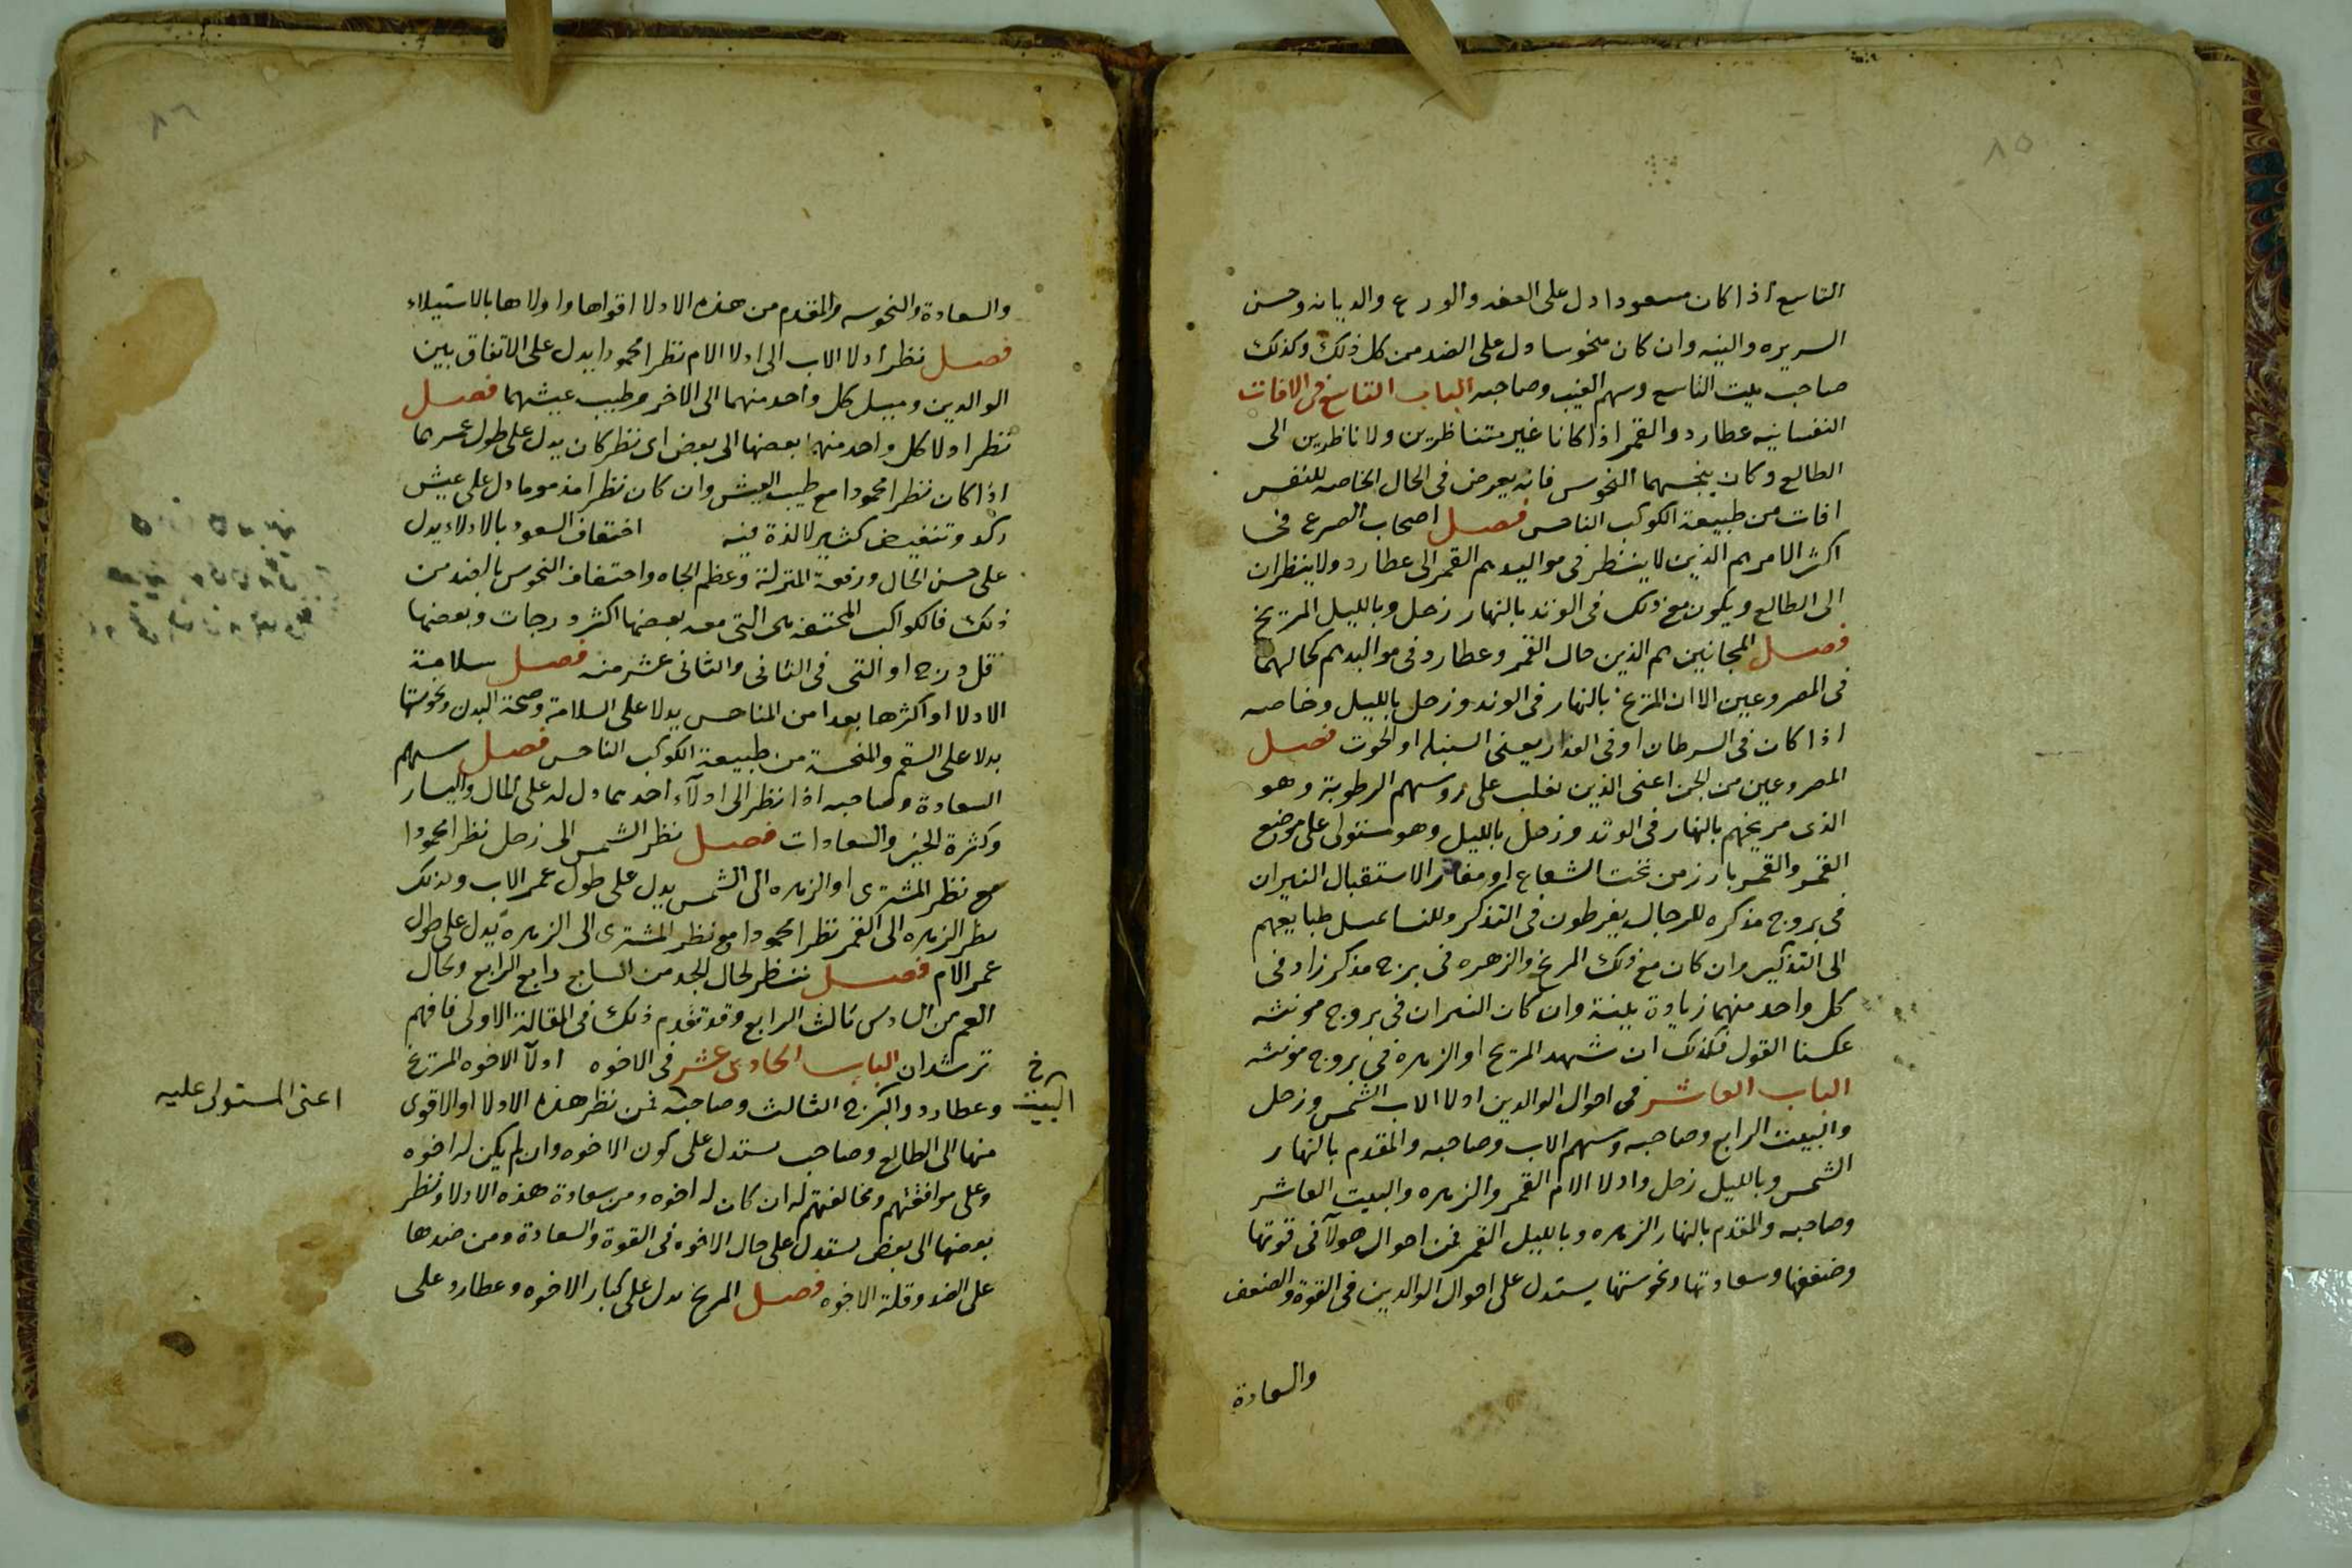 ٨٥
التاسع اذا كان مسعودا دل على العفه والورع والديانه وحسن
السريره والنيه وان كان منحوسا دل على الضد من كل ذلك وكذلك
صاحب بيت التاسع وسهم الغيب وصاحبه الباب التاسع فى الافات
النفسانيه عطارد والقمر اذا كانا غير متناظرين ولا ناظرين الى
الطالع وكان ينحسهما النحوس فانه يعرض فى الحال الخاصه للنفس
افات من طبيعة الكوكب الناحس فصل اصحاب الصرع فى
اكثر الامر هم الذين لا ينظر فى مواليدهم القمر الى عطارد ولا ينظران
الى الطالع ويكون مع ذلك فى الوتد بالنهار زحل وبالليل المريخ
فصل المجانين هم الذين حال القمر وعطارد فى مواليدهم كحالهما
فى المصروعين الا ان المريخ بالنهار فى الوتد وزحل بالليل وخاصه
اذا كان فى السرطان او فى العذار يعنى السنبله او الحوت فصل
المصروعين من الجن اعنى الذين تغلب على روسهم الرطوبة وهو
الذى مريخهم بالنهار فى الوتد وزحل بالليل وهو مستولى على موضع
القمر والقمر بارز من تحت الشعاع او مفارق الاستقبال النيران
فى بروج مذكره للرجال يفرطون فى التذكر وللنسا تميل طبايعهم
الى التذكير وان كان مع ذلك المريخ والزهره فى برج مذكر زاد فى
كل واحد منهما زيادة بينة وان كان النيران فى بروج مونثه
عكسنا القول فكذلك ان شهد المريخ او الزهرة فى بروج مونثه
الباب العاشر فى احوال الوالدين ادلا الاب الشمس وزحل
والبيت الرابع وصاحبه وسهم الاب وصاحبه والمقدم بالنهار
الشمس وبالليل زحل وادلا الام القمر والزهره والبيت العاشر
وصاحبه والمقدم بالنهار الزهره وبالليل القمر فمن احوال هولآ فى قوتها
وضعفها وسعادتها ونحوستها يستدل على احوال الوالدين فى القوة والضعف
والسعادة
٨٦
والسعادة والنحوسه والمقدم من هذه الادلا اقواها واولاها بالاستيلاء
فصل نظر ادلا الاب الى ادلا الام نظرا محمودا يدل على الاتفاق بين
الوالدين وميل كل واحد منهما الى الاخر وطيب عيشهما فصل
نظر ادلا كل واحد منهما بعضها الى بعض اى نظر كان يدل على طول عمرهما
اذا كان نظرا محمودا مع طيب العيش وان كان نظرا مذموما دل على عيش
ركد وتنغيض كثير لا لذة فيه احتفاف السعود بالادلاء يدل
على حسن الحال ورفعة المنزلة وعظم الجاه واحتفاف النحوس بالضد من
ذلك فالكواكب المحتفه هى التى معه بعضها اكثر درجات وبعضها
اقل درج او التى فى الثانى والثانى عشر منه فصل سلامة
الادلا او اكثرها بعدا من المناحس يدلا على السلامة وصحة البدن ونحوستها
يدلا على السقم والمنحسة من طبيعة الكوكب الناحس فصل سهم
السعادة وصاحبه اذا نظر الى ادلآء احدهما دل له على المال واليسار
وكثرة الخير والسعادات فصل نظر الشمس الى زحل نظرا محمودا
مع نظر المشترى او الزهره الى الشمس يدل على طول عمر الاب وكذلك
نظر الزهره الى القمر نظرا محمودا مع نظر المشترى الى الزهرة يدل على طول
عمر الام فصل ننظر لحال الجد من السابع رابع الرابع ولحال
العم من السادس ثالث الرابع وقد تقدم ذلك فى المقالة الاولى فافهم
ترشد ان الباب الحادى عشر فى الاخوه ادلآ الاخوه المريخ
وعطارد والبرج الثالث وصاحبه فمن نظر هذه الادلا او الاقوى
البيت
اعنى المستولى عليه
منها الى الطالع وصاحبه يستدل على كون الاخوه وان لم يكن له اخوه
وعلى موافقتهم ومخالفتهم له ان كان له اخوه ومن سعادة هذه الادلا ونظر
بعضها الى بعض يستدل على حال الاخوه فى القوة والسعادة ومن ضدها
على الضد وقلة الاخوه فصل المريخ يدل على كبار الاخوه وعطارد على